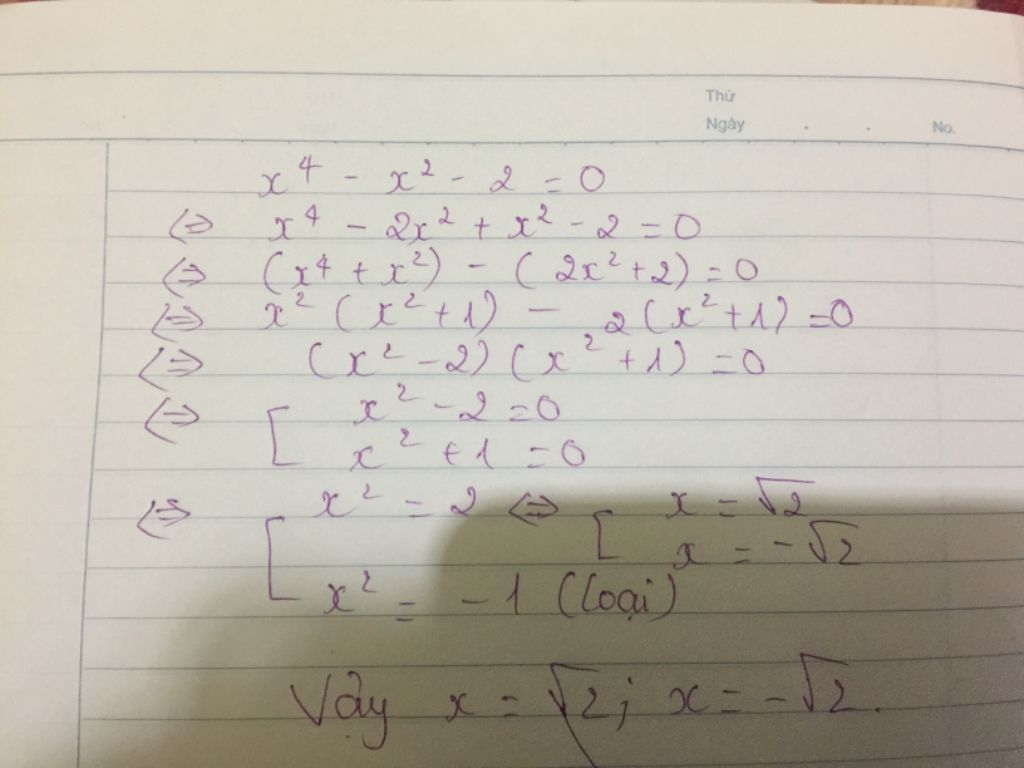 Thứ
Ngày . . No.
x⁴ - x² - 2 = 0
⇔ x⁴ - 2x² + x² - 2 = 0
⇔ (x⁴ + x²) - (2x² + 2) = 0
⇔ x² (x² + 1) - 2 (x² + 1) = 0
⇔ (x² - 2) (x² + 1) = 0
⇔ [ x² - 2 = 0
x² + 1 = 0
⇔ [ x² = 2 ⇔ [ x = √2
x = -√2
x² = -1 (loại)
Vậy x = √2; x = -√2.